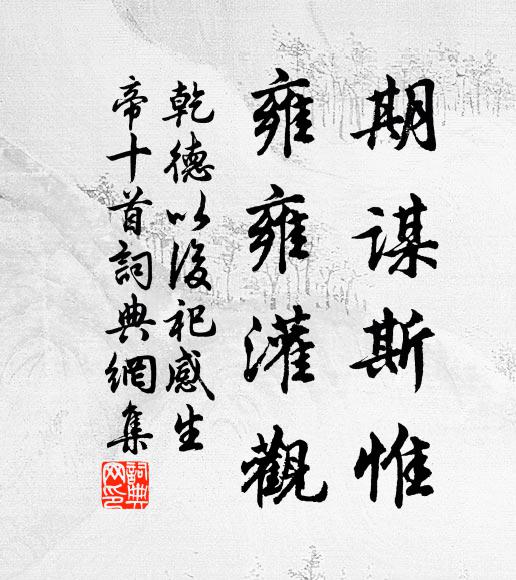 期謀斯惟
雍雍灌觀
乾德以後祀感生
帝十首詞典網集
詞典网印